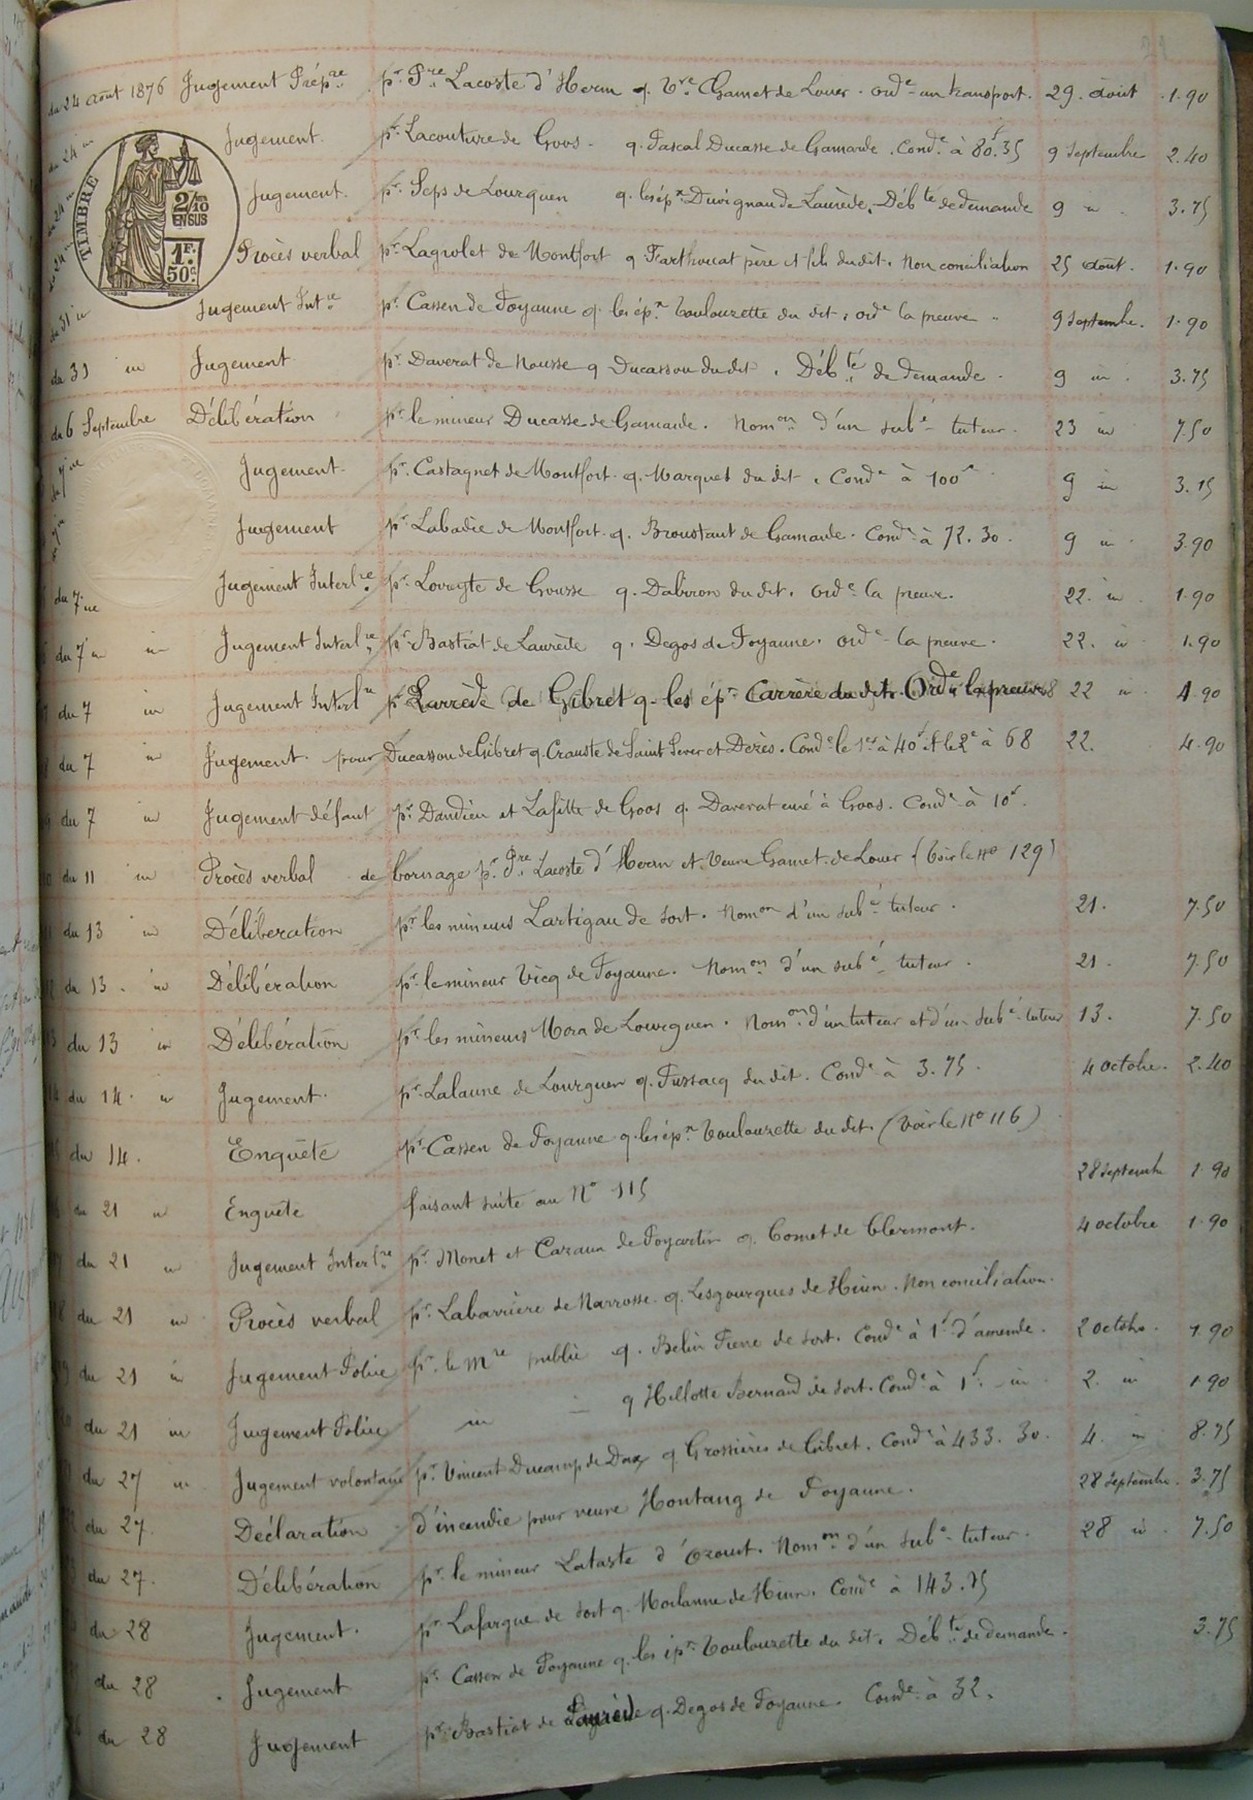 du 24 août 1876 Jugement Prép.re pr. Pre Lacoste d'Herm q. Vve Gamet de Louer. Ord.e un transport. 29. août 1.90
du 24 in Jugement. pr. Lacouture de Goos. q. Pascal Ducasse de Gamarde. Cond.e à 80f.35 9 Septembre 2.40
TIMBRE
2/10 EN SUS
1F. 50c.
du 24 in Jugement. pr. Seps de Lourquen q. les ép.x Duvignau de Laurède. Déb.té de demande 9 in. 3.75
du 24 in Procès verbal pr. Lagrolet de Montfort q Farthouat père et fils du dit. Non conciliation 25 août. 1.90
du 31 in Jugement Int.re pr. Cassen de Poyanne q. les ép.x Toulouzette du dit. Ord.e la preuve 9 Septembre. 1.90
du 31 in Jugement pr. Daverat de Nousse q Ducassou du dit. Déb.té de demande. 9 in. 3.75
du 6 Septembre Délibération pr. le mineur Ducasse de Gamarde. Nom.on d'un sub.é tuteur. 23 in 7.50
du 7 in Jugement. pr. Castagnet de Montfort. q. Marquet du dit. Cond.e à 100f 9 in 3.15
7 in Jugement pr. Labadie de Montfort. q. Broustaut de Gamarde. Cond.e à 72.30. 9 in 3.90
du 7 in Jugement Interl.re pr. Loreyte de Gousse q. Dabiron du dit. Ord.e la preuve. 22. in 1.90
du 7 in Jugement Interl.re pr. Bastiat de Laurède q. Degos de Poyanne. Ord.e la preuve. 22. in 1.90
du 7 in Jugement Interl.re pr Larrède de Gibret q. les ép.x Carrère du dit. Ord.e la preuve 22 in 1.90
du 7 in Jugement. pour Ducassou de Gibret q. Crauste de Saint Sever et Dezès. Cond.e le 1er à 40f et le 2e à 68 22. 4.90
du 7 in Jugement défaut pr. Dandieu et Lafitte de Goos q. Daverat curé à Goos. Cond.e à 10f.
du 11 in Procès verbal de bornage pr. Pre Lacoste d'Herm et Veuve Gamet de Louer (Voir le No 129)
du 13 in Délibération pr. les mineurs Lartigau de Sort. Nom.on d'un sub.é tuteur. 21. 7.50
du 13. in Délibération pr. le mineur Vicq de Poyanne. Nom.on d'un sub.é tuteur. 21. 7.50
du 13 in Délibération pr. les mineurs Mora de Lourquen. Nom.on d'un tuteur et d'un sub.é tuteur 13. 7.50
du 14. in Jugement. pr. Lalanne de Lourquen q. Tussacq du dit. Cond.e à 3.75. 4 octobre. 2.40
du 14. Enquête pr. Cassen de Poyanne q. les ép.x Toulouzette du dit. (Voir le No 116)
du 21 in Enquête faisant suite au No 115 28 Septembre 1.90
du 21 in Jugement Interl.re pr. Monet et Cazaux de Poyartin q. Comet de Clermont. 4 octobre 1.90
du 21 in Procès verbal pr. Labarrière de Narrosse. q. Lesgourgues de Hinx. Non conciliation.
du 21 in Jugement Police pr. le M.re public q. Belin Pierre de Sort. Cond.e à 1f d'amende. 2 octobre. 1.90
du 21 in Jugement Police in q Hillotte Bernard de Sort. Cond.e à 1f. in 2. in 1.90
du 27 in Jugement volontaire pr. Vincent Ducamp de Dax q Grossières de Gibret. Cond.e à 433.30. 4. in 8.75
du 27. Déclaration d'incendie pour veuve Hontang de Poyanne. 28 Septembre. 3.75
du 27. Délibération pr. le mineur Lataste d'Ozourt. Nom.on d'un sub.é tuteur. 28 in 7.50
du 28 Jugement. pr Lafargue de Sort q. Morlanne de Hinx. Cond.e à 143.75
du 28 Jugement pr. Cassen de Poyanne q. les ép.x Toulouzette du dit. Déb.té de demande. 3.75
du 28 Jugement pr. Bastiat de Laurède q. Degos de Poyanne. Cond.e à 32.